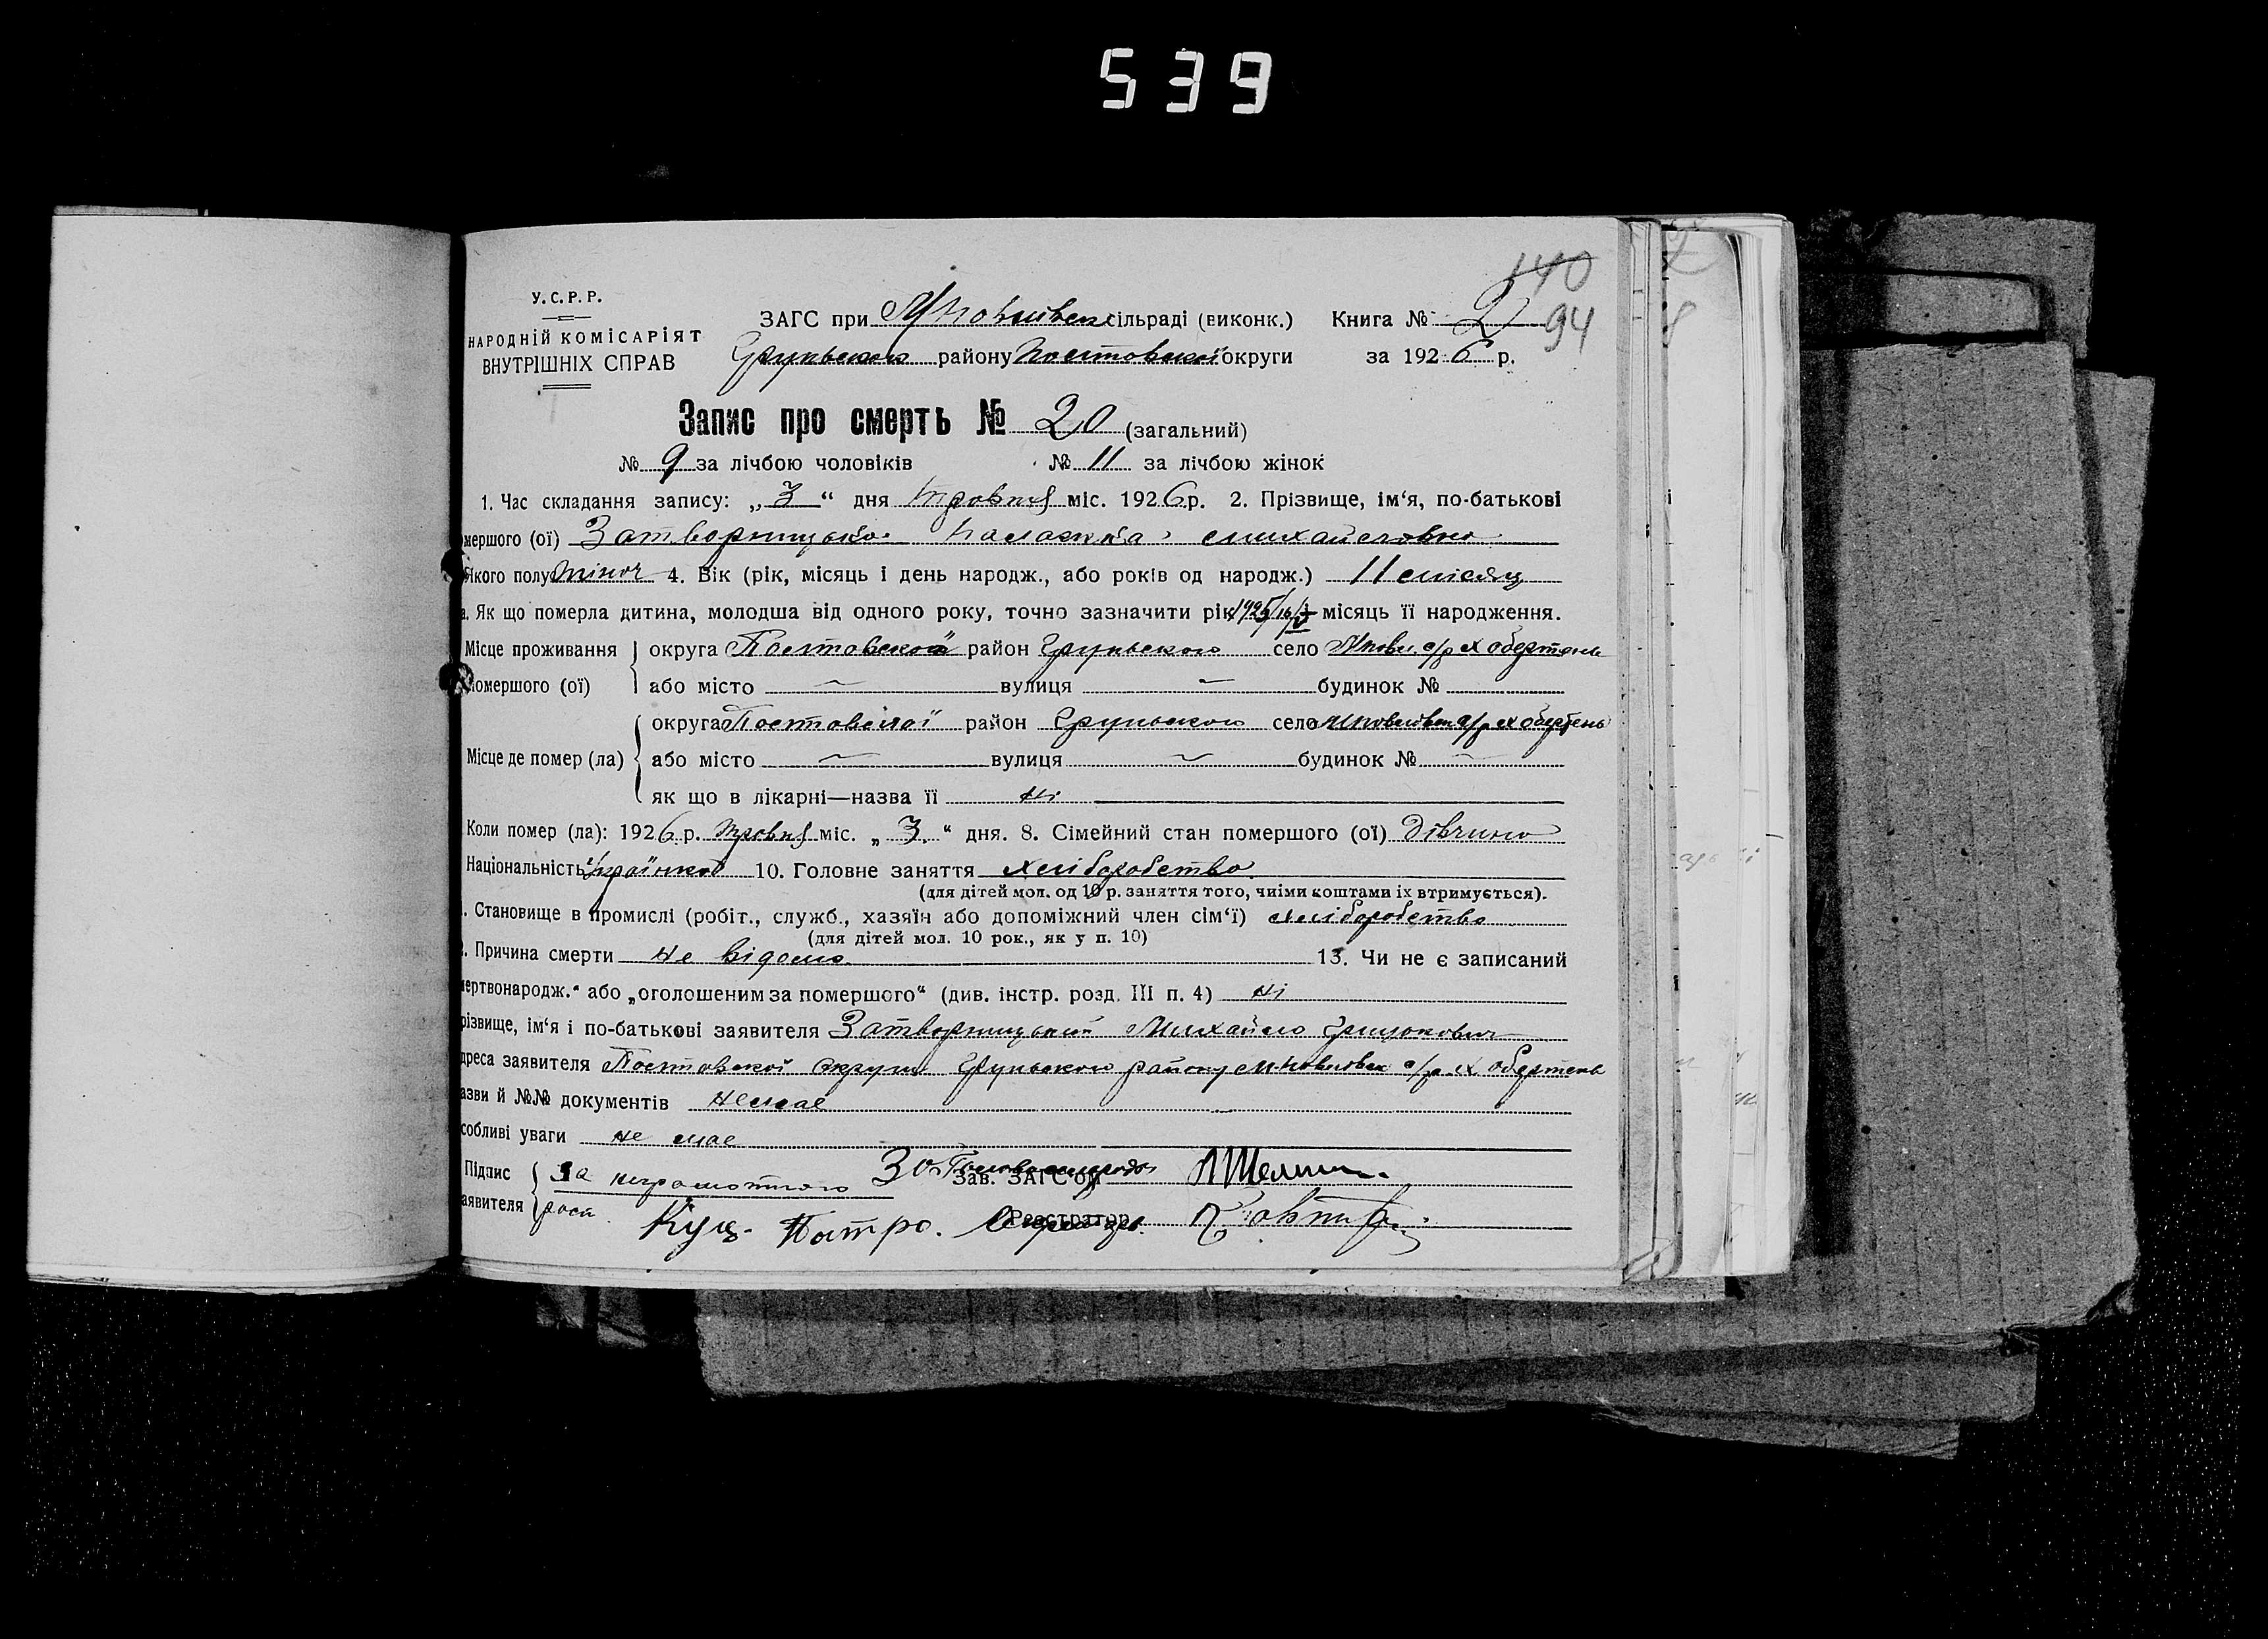 539
140
94
У.С.Р.Р.
НАРОДНІЙ КОМІСАРІЯТ
ВНУТРІШНІХ СПРАВ
ЗАГС при сільраді (виконк.) Книга № 2
Грунського району Полтавської округи за 1926 р.
Запис про смерть № 20 (загальний)
№ 9 за лічбою чоловіків № 11 за лічбою жінок
1. Час складання запису: „3“ дня травня міс. 1926 р. 2. Прізвище, ім‘я, по-батькові
мершого (ої) Затворницька Палажка Михайловна
Якого полу жіноч 4. Вік (рік, місяць і день народж., або років од народж.) 11 місяц
а. Як що померла дитина, молодша від одного року, точно зазначити рік 1925 місяць її народження.
Місце проживання округа Полтавської район Грунського село с/р х Обертень
помершого (ої) або місто — вулиця — будинок №
округа Полтавської район Грунського село с/р х Обертень
Місце де помер (ла) або місто — вулиця — будинок № —
як що в лікарні—назва її ні
Коли помер (ла): 1926 р. травня міс. „3“ дня. 8. Сімейний стан помершого (ої) дівчина
Національність Українка 10. Головне заняття хліборобство
(для дітей мол. од 10 р. заняття того, чиїми коштами їх втримується).
. Становище в промислі (робіт., служб., хазяїн або допоміжний член сім‘ї) хліборобство
(для дітей мол. 10 рок., як у п. 10)
2. Причина смерти не відома 13. Чи не є записаний
мертвонародж.“ або „оголошеним за помершого“ (див. інстр. розд. III п. 4) ні
різвище, ім‘я і по-батькові заявителя Затворницький Михайло
дреса заявителя Полтавської округи Грунського району с/р х Обертень
азви й №№ документів немає
собливі уваги не має
Підпис за неграмотного Зав. ЗАГС‘ом
аявителя роси Куц Петро. Реєстратор